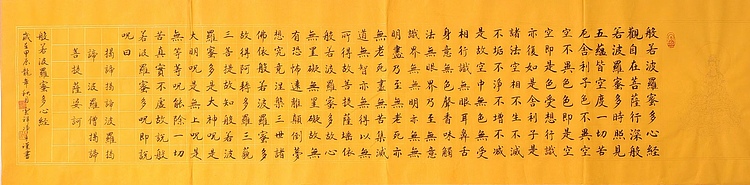 般若波羅蜜多心經
觀自在菩薩行深般
若波羅蜜多時照見
五蘊皆空度一切苦
厄舍利子色不異空
空不異色色即是空
空即是色受想行識
亦復如是舍利子是
諸法空相不生不滅
不垢不淨不增不減
是故空中無色無受
想行識無眼耳鼻舌
身意無色聲香味觸
法無眼界乃至無意
識界無無明亦無無
明盡乃至無老死亦
無老死盡無苦集滅
道無智亦無得以無
所得故菩提薩埵依
般若波羅蜜多故心
無罣礙無罣礙故無
有恐怖遠離顛倒夢
想究竟涅槃三世諸
佛依般若波羅蜜多
故得阿耨多羅三藐
三菩提故知般若波
羅蜜多是大神咒是
大明咒是無上咒是
無等等咒能除一切
苦真實不虛故說般
若波羅蜜多咒即說
咒曰
揭諦揭諦波羅揭
諦 波羅僧揭諦
菩提薩婆訶
般若波羅蜜多心經
歲在甲辰龍年秋月